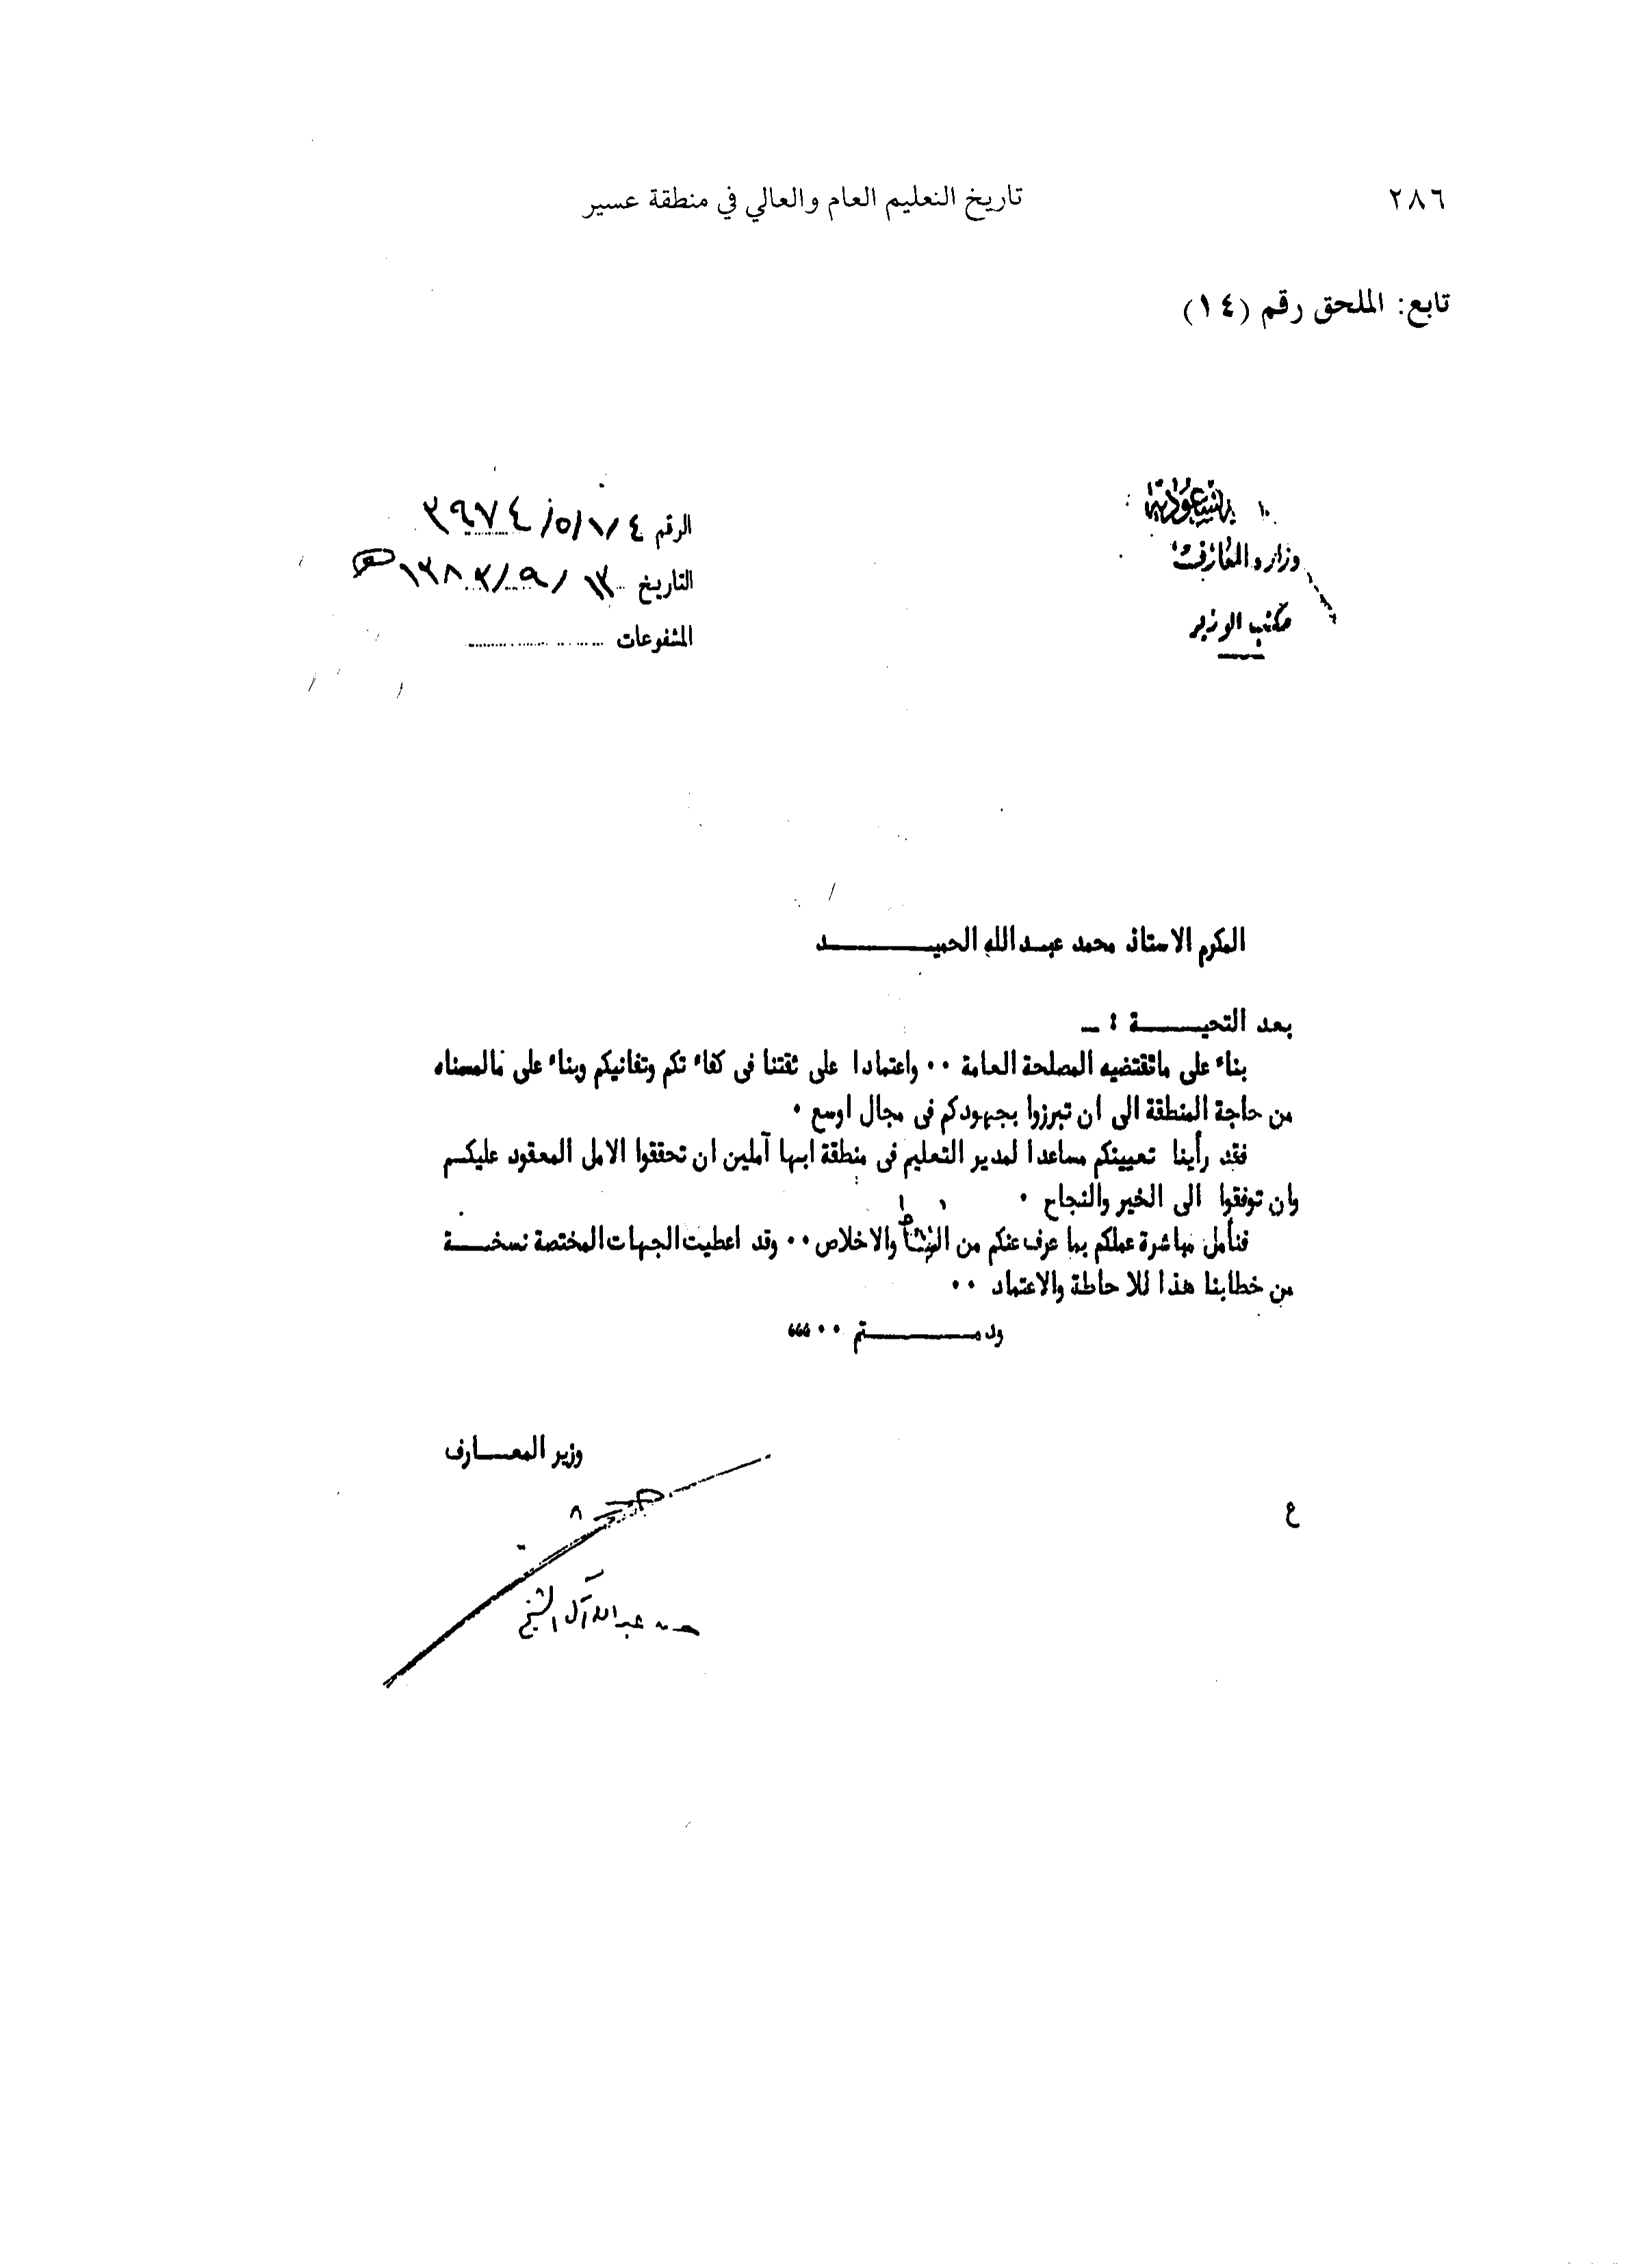 ٢٨٦
تاريخ التعليم العام والعالي في منطقة عسير
تابع: الملحق رقم (١٤)
السعودية
وزارة المعارف
مكتب الوزير
الرقم ٣٩٧٤/٥/١/٤
التاريخ ١٣/٩/١٣٨٢هـ
المشفوعات
المكرم الاستاذ محمد عبدالله الحميد
بعد التحية : ـ
بناء على ماتقتضيه المصلحة العامة ٠٠ واعتمادا على ثقتنا فى كفاء تكم وتفانيكم وبناء على مالمسناه
من حاجة المنطقة الى ان تبرزوا بجهودكم فى مجال اوسع ٠
فقد رأينا تعيينكم مساعدا لمدير التعليم فى منطقة ابها آملين ان تحققوا الامل المعقود عليكم
وان توفقوا الى الخير والنجاح ٠
فنأمل مباشرة عملكم بما عرف عنكم من النشاط والاخلاص ٠٠ وقد اعطيت الجهات المختصة نسخة
من خطابنا هذا للاحاطة والاعتماد ٠٠
ودمتم ٠٠،،،
وزير المعارف
ع
حسن عبدالله آل الشيخ